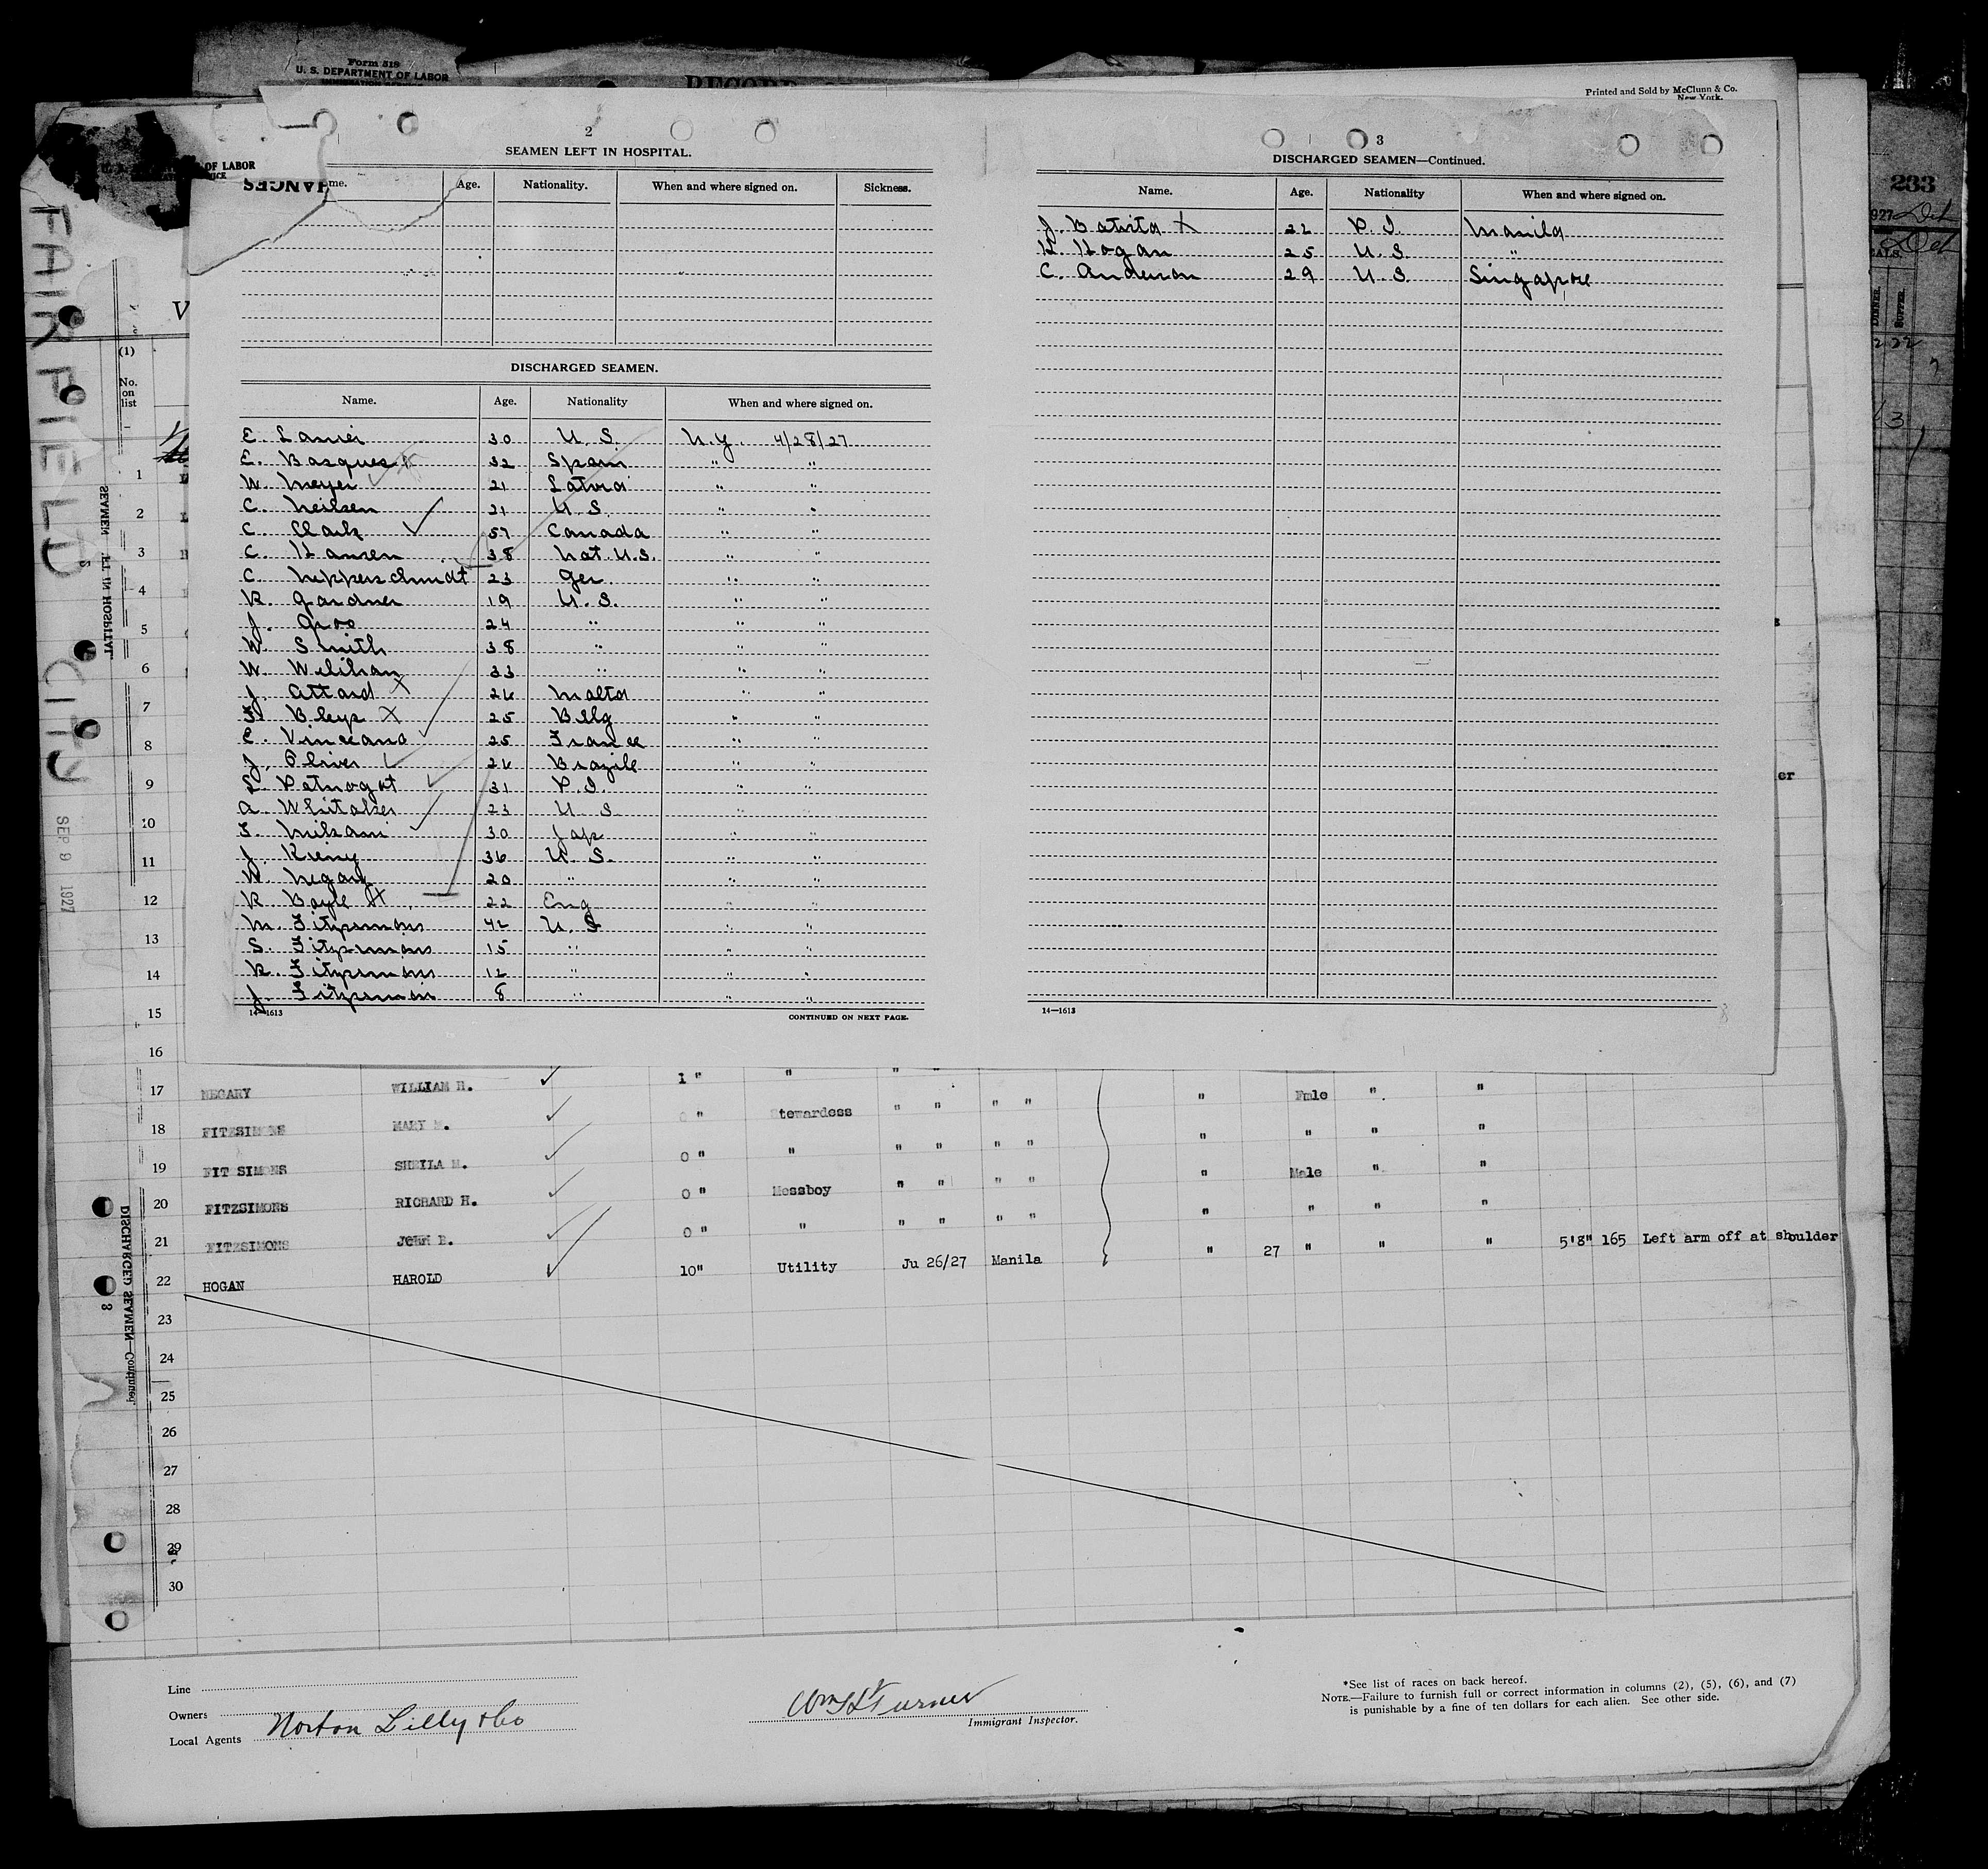 Form 519
U. S. DEPARTMENT OF LABOR
RECORD
Printed and Sold by McClunn & Co.
New York.
OF LABOR
FAIRFIELD CITY
SEP 9 1927
233
2
SEAMEN LEFT IN HOSPITAL.
Age. Nationality. When and where signed on. Sickness.
DISCHARGED SEAMEN.
Name. Age. Nationality When and where signed on.
E. Lanier 30 U. S. N.Y. 4/28/27
E. Basques 32 Spain " "
W. Meyer 21 Latvia " "
C. Neilsen 21 U. S. " "
C. Clark 57 Canada " "
C. Hansen 38 Nat. U.S. " "
C. Nepperschmidt 23 Ger. " "
R. Gardner 19 U. S. " "
J. Groo 24 " " "
W. Smith 38 " " "
W. Welihan 33 " " "
J. Attard X 26 Malta " "
F. Bleys X 25 Belg " "
E. Vinceano 25 France " "
J. Oliver 26 Brazile " "
L. Patnogot 31 P. I. " "
A. Whitaker 23 U. S. " "
F. Mikami 30 Jap " "
J. Kieny 36 U. S. " "
W. Negary 20 " " "
R. Bayle 22 Eng " "
M. Fitzsimons 42 U. S " "
S. Fitzsimons 15 " " "
R. Fitzsimons 12 " " "
J. Fitzsimons 8 " " "
14—1613 CONTINUED ON NEXT PAGE.
3
DISCHARGED SEAMEN—Continued.
Name. Age. Nationality When and where signed on.
J. Batista X 22 P. I. Manila
H. Hogan 25 U. S. "
C. Anderson 29 U. S. Singapore
14—1613
(1)
No. on list
1
2
3
4
5
6
7
8
9
10
11
12
13
14
15
16
17 NEGARY WILLIAM H. 1 " " " "
18 FITZSIMONS MARY M. 0 " Stewardess " " " " " Fmle " "
19 FITZSIMONS SHEILA M. 0 " " " " " " " " " "
20 FITZSIMONS RICHARD H. 0 " Messboy " " " " " Male " "
21 FITZSIMONS JOHN B. 0 " " " " " " " " " "
22 HOGAN HAROLD 10" Utility Ju 26/27 Manila " 27 " " " 5'8" 165 Left arm off at shoulder
23
24
25
26
27
28
29
30
SEAMEN LEFT IN HOSPITAL.
DISCHARGED SEAMEN—Continued.
Line
Owners
Local Agents Norton Lilly & Co
Immigrant Inspector.
*See list of races on back hereof.
NOTE.—Failure to furnish full or correct information in columns (2), (5), (6), and (7)
is punishable by a fine of ten dollars for each alien. See other side.